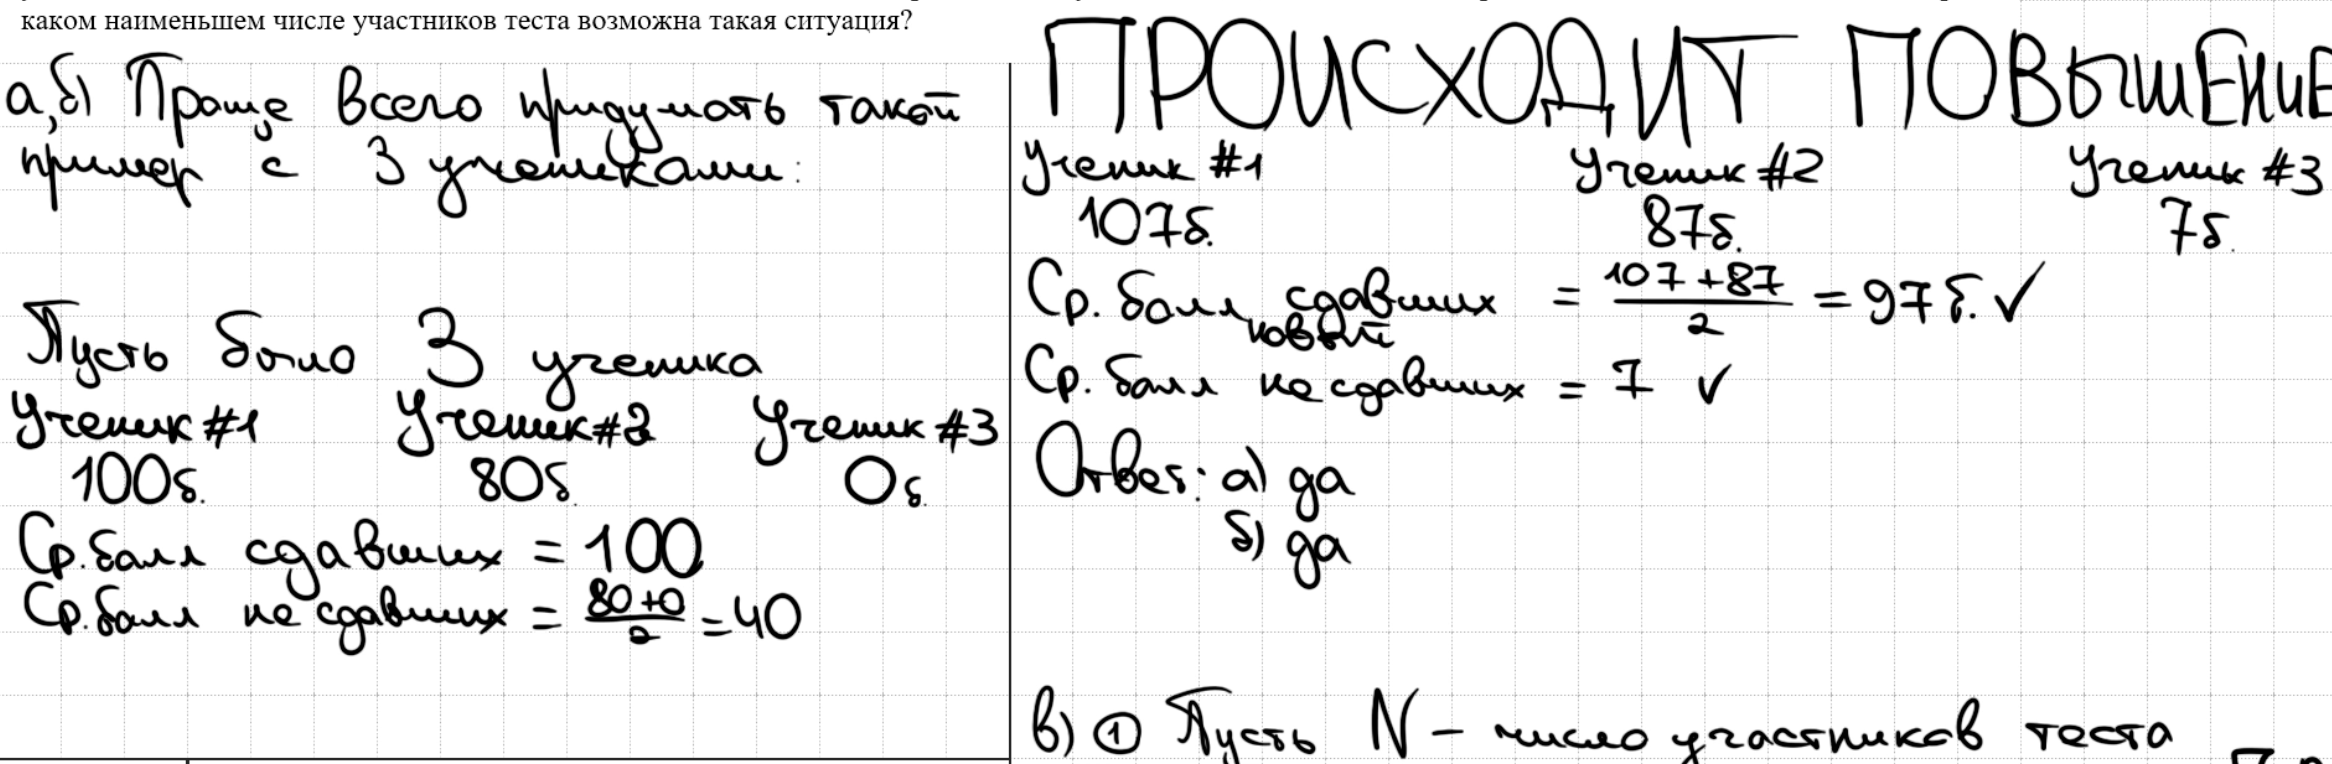 каком наименьшем числе участников теста возможна такая ситуация?
а,б) Проще всего придумать такой
пример с 3 учениками:
Пусть было 3 ученика
Ученик #1 Ученик #2 Ученик #3
100б. 80б. 0б.
Ср. балл сдавших = 100
Ср. балл не сдавших = (80+0)/2 = 40
ПРОИСХОДИТ ПОВЫШЕНИЕ
Ученик #1 Ученик #2 Ученик #3
107б. 87б. 7б.
Ср. балл сдавших = (107+87)/2 = 97 б. ✓
новый
Ср. балл не сдавших = 7 ✓
Ответ: а) да
б) да
в) ① Пусть N – число участников теста